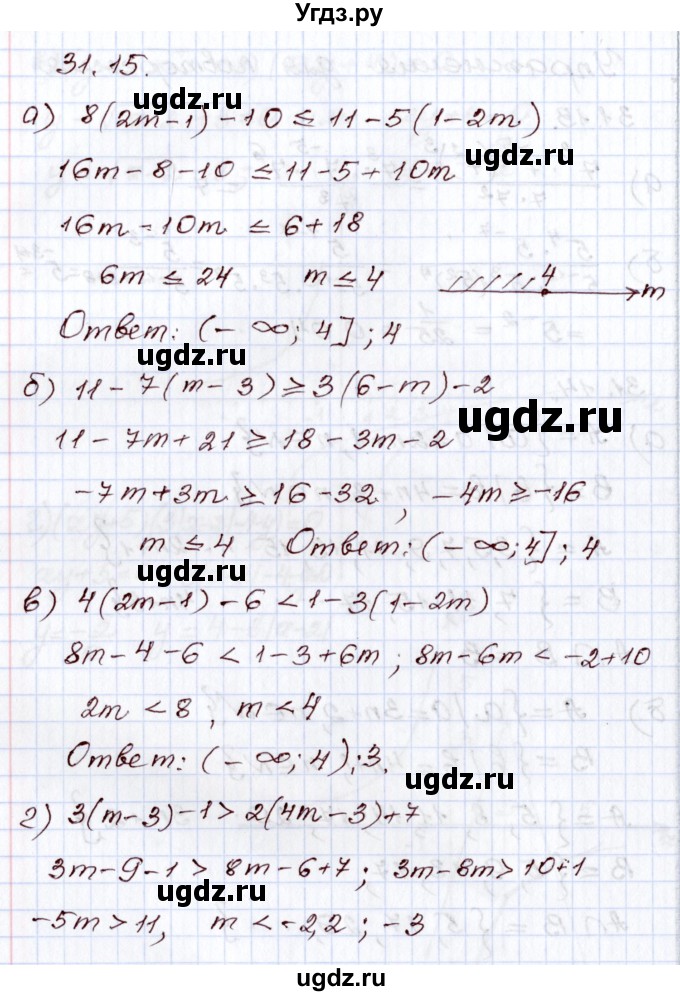 Угдз.ру
31.15.
а) 8(2m-1)-10 ≤ 11-5(1-2m)
16m-8-10 ≤ 11-5+10m
16m-10m ≤ 6+18
6m ≤ 24 m ≤ 4 4 m
Ответ: (-∞; 4]; 4
б) 11-7(m-3) ≥ 3(6-m)-2
11-7m+21 ≥ 18-3m-2
-7m+3m ≥ 16-32, -4m ≥ -16
m ≤ 4 Ответ: (-∞; 4]; 4
в) 4(2m-1)-6 < 1-3(1-2m)
8m-4-6 < 1-3+6m; 8m-6m < -2+10
2m < 8, m < 4
Ответ: (-∞; 4); 3.
г) 3(m-3)-1 > 2(4m-3)+7
3m-9-1 > 8m-6+7; 3m-8m > 10+1
-5m > 11, m < -2,2; -3
ugdz.ru
ugdz.ru
ugdz.ru
ugdz.ru
ugdz.ru
ugdz.ru
ugdz.ru
ugdz.ru
ugdz.ru